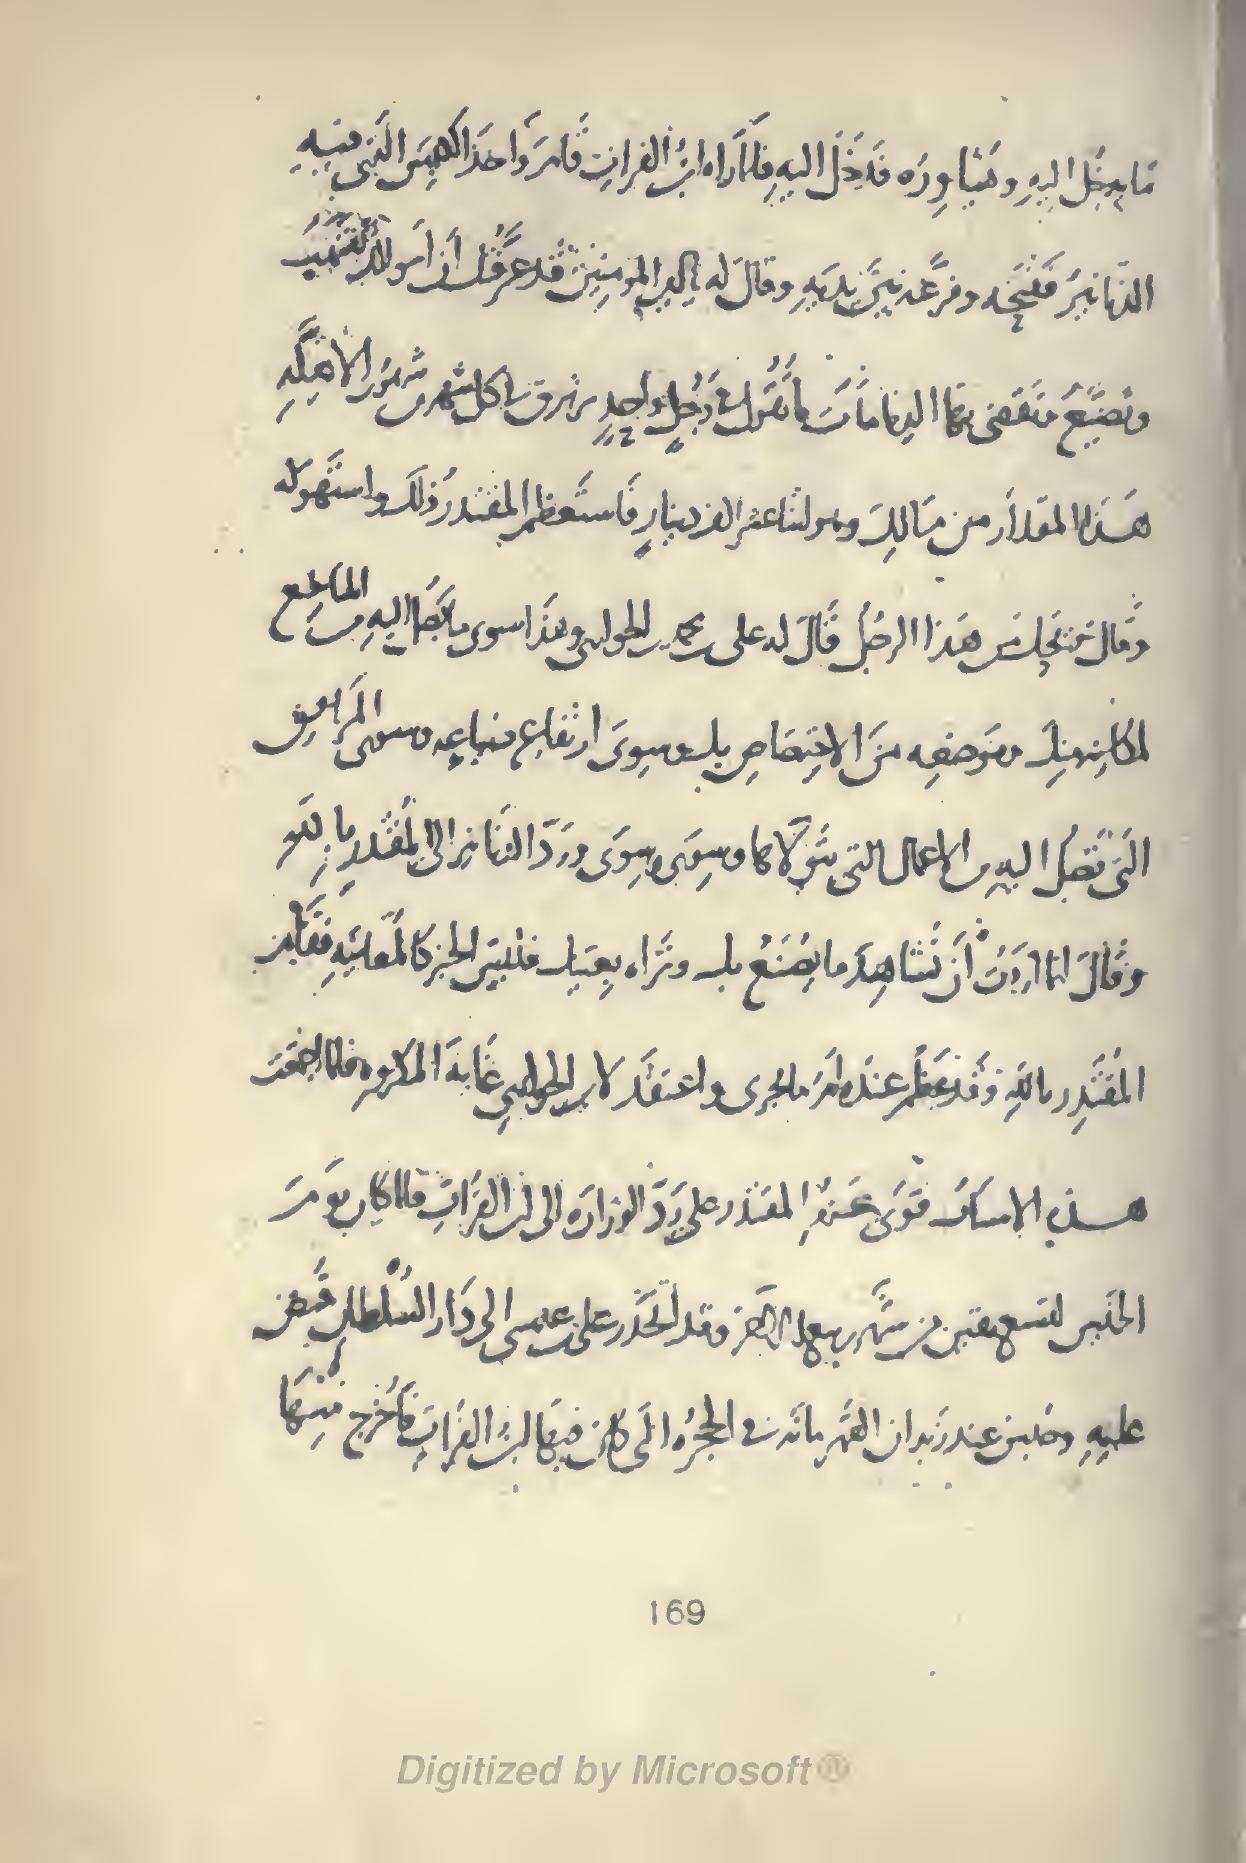 ما يدخل اليه ويشاوره فدخل اليه فلما راه ابن الفرات قام واخذ الكيس الذي فيه
الدنانير ففتحه وفرغه بين يديه وقال له يا امير المومنين قد عرفتك ان اموالك تنهب
وتضيع وتقضى بها الذمامات ما تقول في رجل واحد يرتزق في كل شهر من شهور الاهلة
هذا المقدار من مالك وهو اثنا عشر الف دينار فاستعظم المقتدر ذلك واستهوله
وقال من هذا الرجل قال له علي بن محمد بن الحواري وهذا سوى ما يصل اليه من المنافع
لمكانه منك وموضعه من الاختصاص بك وسوى ارتفاع ضياعه وسوى المرافق
التي تصل اليه من الاعمال التي يتولاها وسوى وسوى ورد الدنانير الى المقتدر بالله
وقال انما اردت ان تشاهد ما يصنع بك وتراه بعينك فليس الخبر كالمعاينة فقام
المقتدر بالله وقد عظم عنده امر ما جرى واعتقد لابن الحواري غاية المكروه فلما اجتمعت
هذه الاسباب قوى عزم المقتدر على رد الوزارة الى ابن الفرات فلما كان يوم
الخميس لتسع بقين من شهر ربيع الاخر وقد انحدر علي بن عيسى الى دار السلطان قبض
عليه وحبس عند زيدان القهرمانة في الحجرة التي كان فيها ابن الفرات فاخرج منها
169
Digitized by Microsoft®